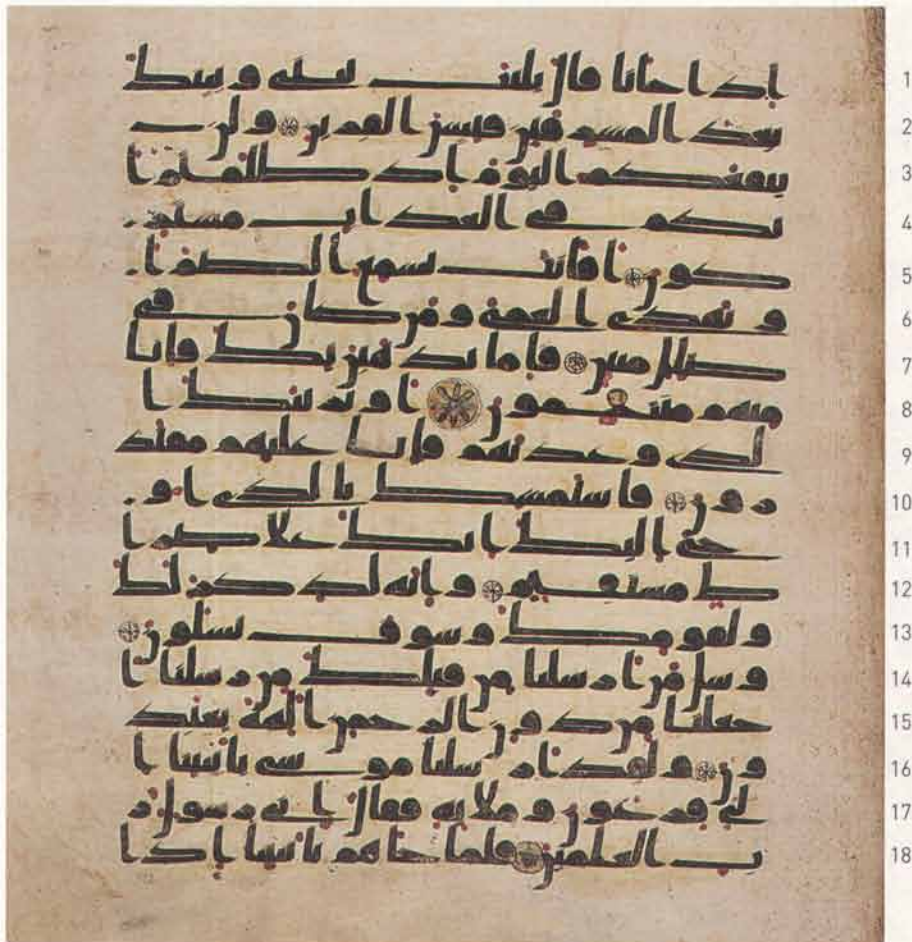 1 اذا جانا قال يليت بيني وبينك
2 بعد المشرقين فبيس القرين ولن
3 ينفعكم اليوم اذ ظلمتم ا
4 نكم في العذاب مشتر
5 كون افانت تسمع الصم ا
6 و تهدي العمي ومن كان في
7 ضلل مبين فاما نذهبن بك فانا
8 منهم منتقمون او نرينك ا
9 لذي وعدنهم فانا عليهم مقتد
10 رون فاستمسك بالذي او
11 حي اليك انك على صرا
12 ط مستقيم وانه لذكر لك
13 ولقومك وسوف تسلون
14 وسل من ارسلنا من قبلك من رسلنا ا
15 جعلنا من دون الرحمن الهة يعبد
16 ون ولقد ارسلنا موسى بايتنا ا
17 لى فرعون وملايه فقال اني رسول ر
18 ب العلمين فلما جاهم بايتنا اذا